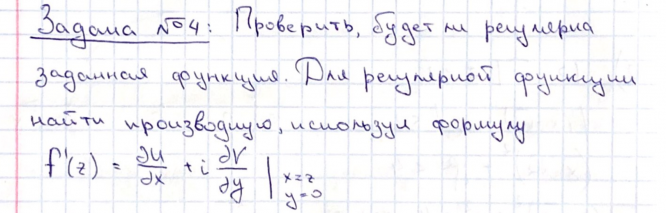 Задача №4: Проверить, будет ли регулярна
заданная функция. Для регулярной функции
найти производную, используя формулу
f'(z) = ∂U/∂x + i ∂V/∂y | x=z y=0